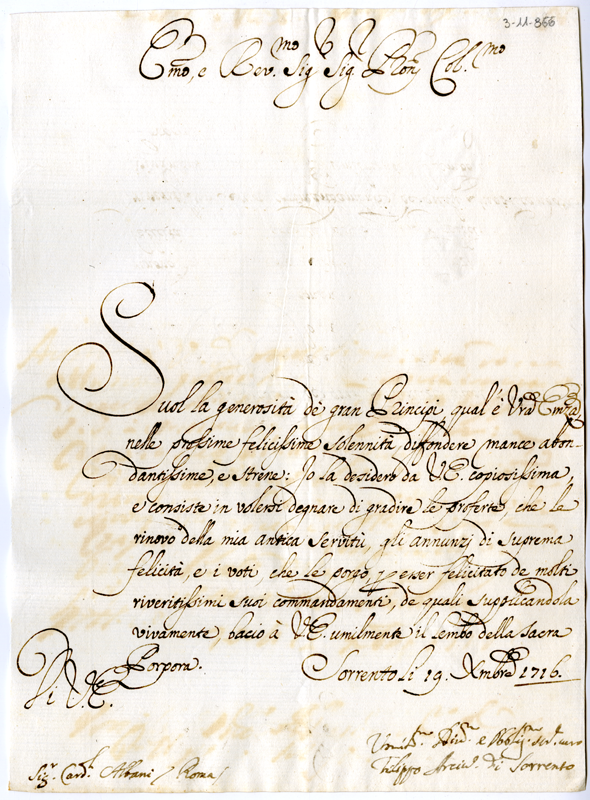 3-11-866
Emo, e Rev.mo Sig.r Sig.r Pron Col.mo
Suol la generosità de gran Principi, qual'è Vra Emza
nelle prossime felicissime solennità diffondere mance abon-
dantissime, e strene: Io la desidero da V.E. copiosissima,
e consiste in volersi degnare di gradire le proferte, che le
rinovo della mia antica servitù, gli annunzj di suprema
felicità, e i voti, che le porgo, p esser felicitato de molti
riveritissimi suoi commandamenti, de quali supplicandola
vivamente, bacio à V.E. umilmente il lembo della Sacra
Porpora. Sorrento li 19. Xmbre 1716.
Di V.E.
Umilmo Divmo e Obblgmo ser.e vero
Filippo Arciv.o di Sorrento
Sig.r Card.l Albani / Roma /